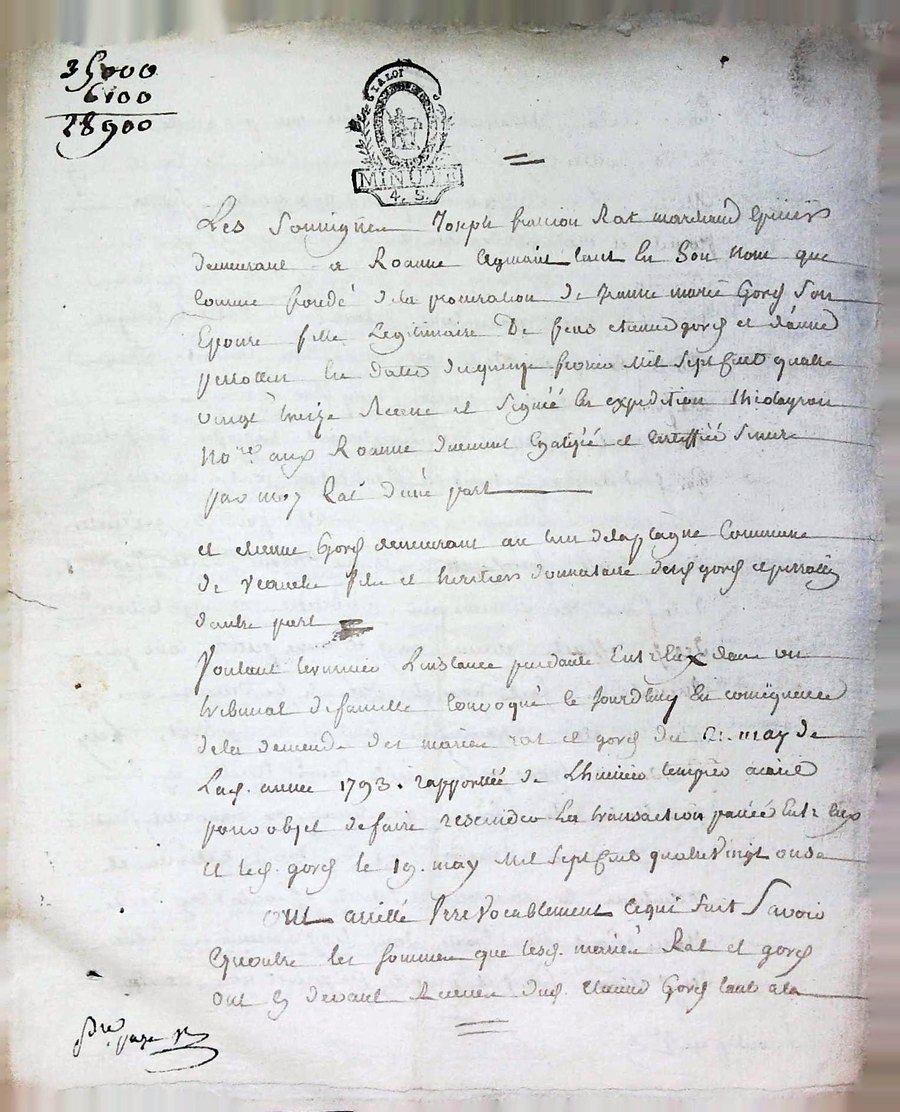 35000
6100
28900
LA LOI
MINUTE
4. S.
Les Soussignés Joseph Rat marchand
demeurant a Roanne agissant tant En Son nom que
comme fondé de la procuration de jeanne marie Gord Son
Epouse fille Legitimaire De feus etienne gord et d'anne
En Datte du quinze Mil Sept Cent quatre
vingt treize Receue et Signée En expedition
No.re aux Roanne duement et Certiffiée Sincere
par moy Rat d'une part
et etienne Gord demeurant au lieu de Commune
de fils et heritier donnataire desd. gord et
d'autre part
Voulant terminer L'instance pendante Entr'Eux dans un
tribunal de famille Convoqué le jourd'huy En consequence
de la demande des mariés rat et gord du 21. may de
Lad. année 1793. rapportée de
pour objet de faire rescinder La transaction passée Entr'Eux
et led. gord le 19. may Mil Sept Cent quatre Vingt onze
ONt arretté Irrevocablement Ce qui suit Savoir
Qu'outre les sommes que lesd. mariés Rat et gord
ont Cy devant Receues dud. Etienne Gord tant a la
p.re page